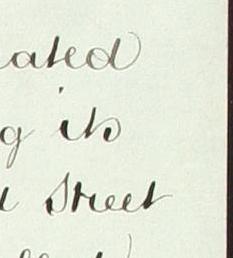 ated
g its
Street